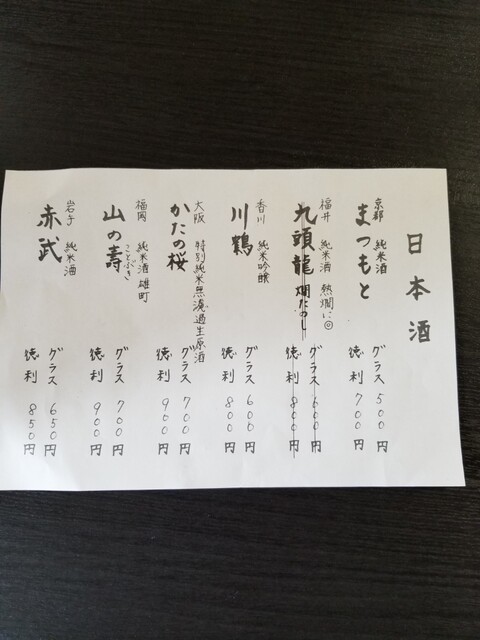 日本酒
京都 純米酒
まつもと
グラス 500円
徳利 700円
福井 純米酒 熱燗に◎
九頭龍 燗たのし
グラス 600円
徳利 800円
香川 純米吟醸
川鶴
グラス 600円
徳利 800円
大阪 特別純米無濾過生原酒
かたの桜
グラス 700円
徳利 900円
福岡 純米酒 雄町
山の壽
ことぶき
グラス 700円
徳利 900円
岩手 純米酒
赤武
グラス 650円
徳利 850円